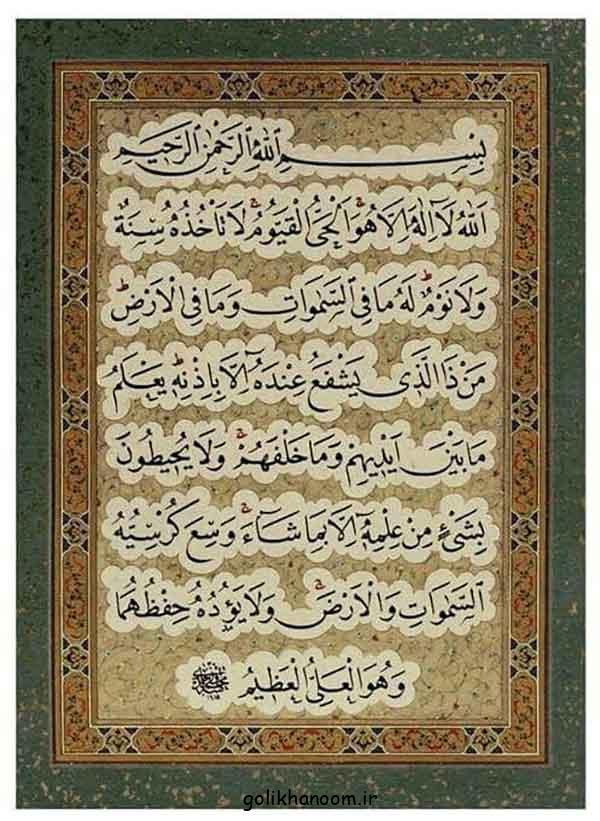 بِسْمِ اللهِ الرَّحْمٰنِ الرَّحِيمِ
اَللهُ لَآ اِلٰهَ اِلَّا هُوَ الْحَيُّ الْقَيُّومُ ۚ لَا تَأْخُذُهُ سِنَةٌ
وَلَا نَوْمٌ ۜ لَهُ مَا فِي السَّمٰوَاتِ وَمَا فِي الْاَرْضِ ۜ
مَنْ ذَا الَّذِي يَشْفَعُ عِنْدَهُ اِلَّا بِاِذْنِهٖ ۜ يَعْلَمُ
مَا بَيْنَ اَيْدِيهِمْ وَمَا خَلْفَهُمْ ۚ وَلَا يُحِيطُونَ
بِشَيْءٍ مِنْ عِلْمِهٖٓ اِلَّا بِمَا شَآءَ ۚ وَسِعَ كُرْسِيُّهُ
السَّمٰوَاتِ وَالْاَرْضَ ۚ وَلَا يَؤُدُهُ حِفْظُهُمَا
وَهُوَ الْعَلِيُّ الْعَظِيمُ
golikhanoom.ir